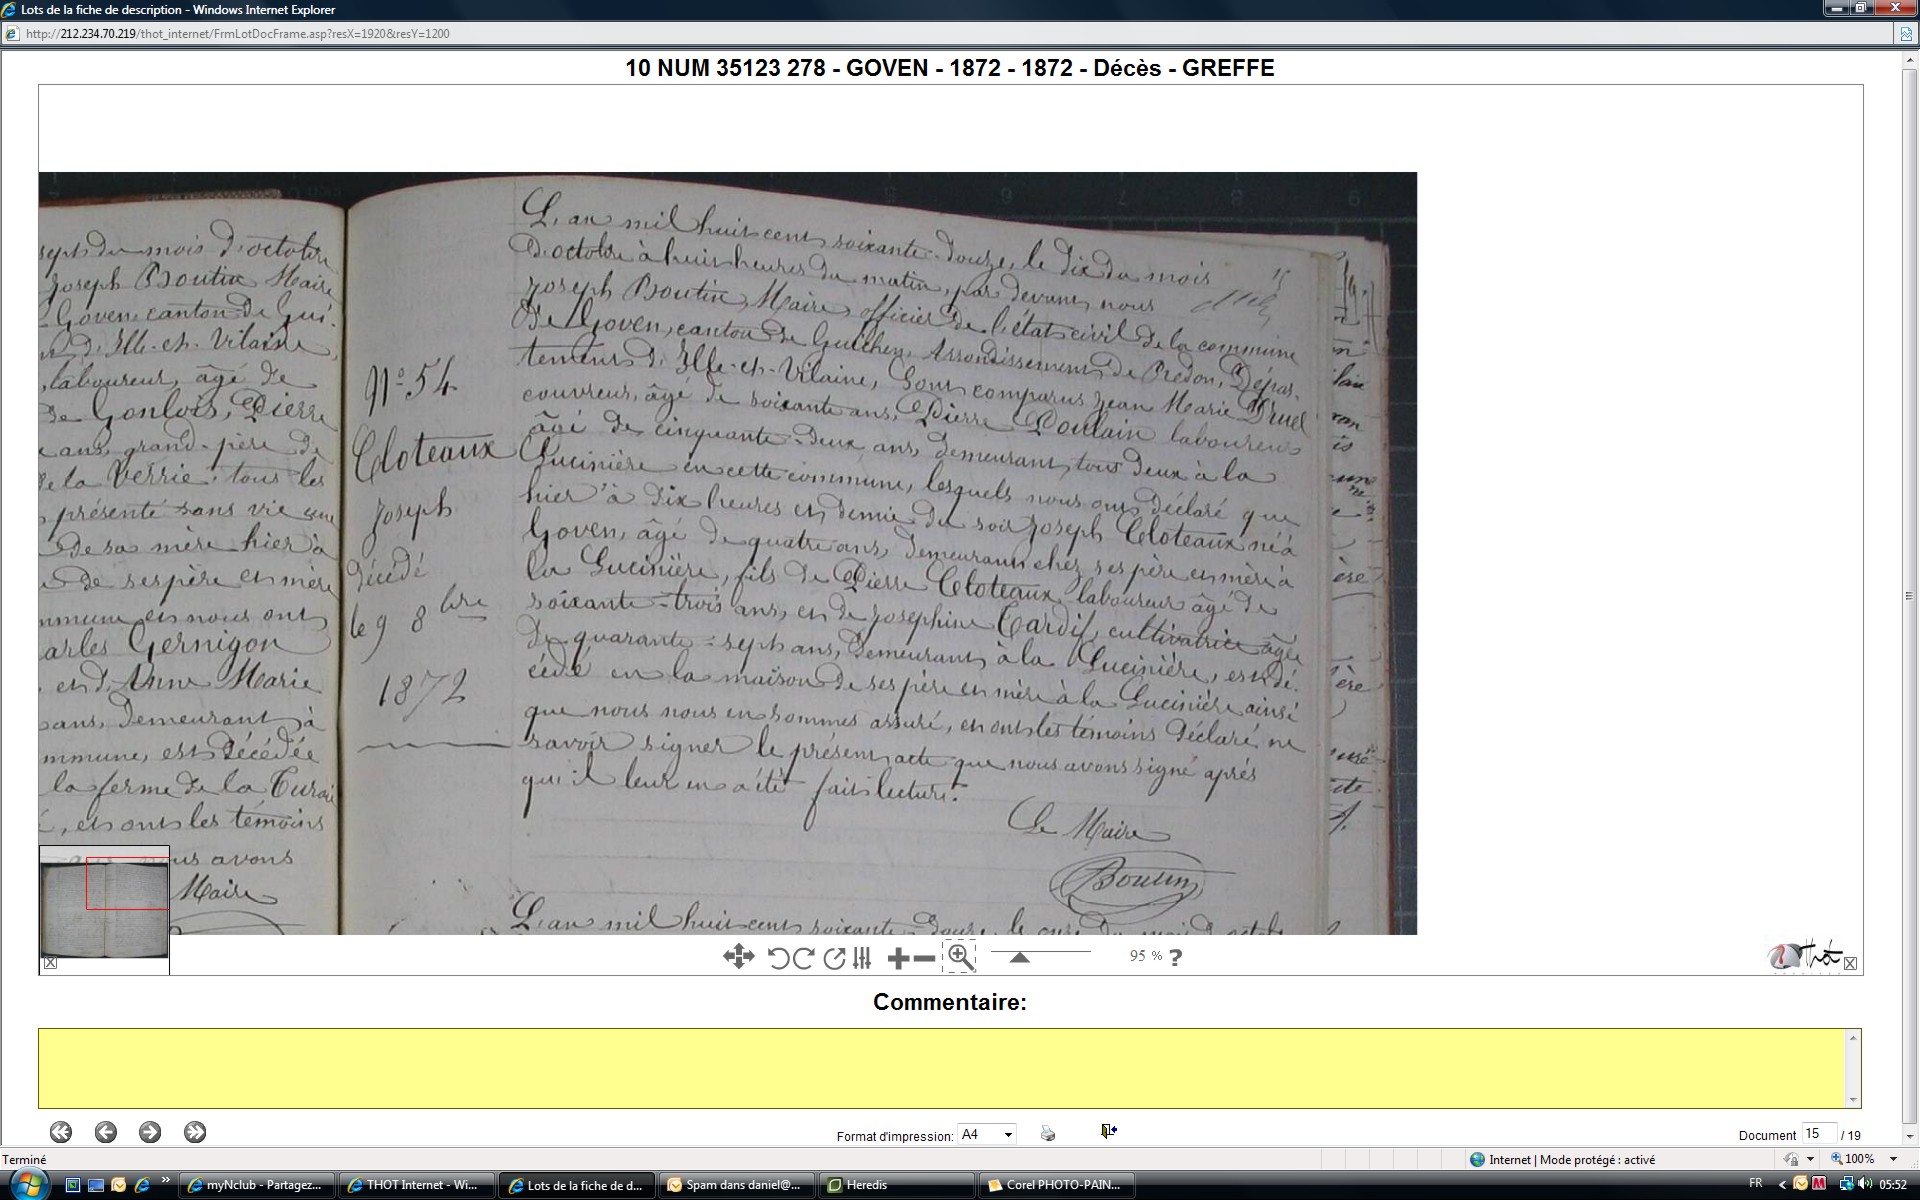 Lots de la fiche de description - Windows Internet Explorer
http://212.234.70.219/thot_internet/FrmLotDocFrame.asp?resX=1920&resY=1200
10 NUM 35123 278 - GOVEN - 1872 - 1872 - Décès - GREFFE
sept du mois d'octobre
Joseph Boutin Maire
Goven, canton de Gui-
d'Ille-et-Vilaine,
laboureur, âgé de
Pierre
ans, grand-père de
de la Verrie, tous les
présenté sans vie une
de sa mère hier à
de ses père et mère
mmune et nous ont
arles Gernigon
et d'Anne Marie
ans, demeurant à
mmune, est décédée
la ferme de la
, et ont les témoins
nous avons
Maire
N° 54
Cloteaux
Joseph
décédé
le 9 8bre
1872
L'an mil huit cent soixante-douze, le dix du mois
d'octobre à huit heures du matin, par devant nous
Joseph Boutin, Maire officier de l'état civil de la commune
de Goven, canton de Guichen, Arrondissement de Redon, Dépar-
tement d'Ille-et-Vilaine, sont comparus Jean Marie Druel
couvreur, âgé de soixante ans, Pierre Poulain laboureur
âgé de cinquante-deux ans, demeurant tous deux à la
Lucinière en cette commune, lesquels nous ont déclaré que
hier à dix heures et demie du soir Joseph Cloteaux né à
Goven, âgé de quatre ans, demeurant chez ses père et mère à
la Lucinière, fils de Pierre Cloteaux laboureur âgé de
soixante-trois ans, et de Joséphine Tardif, cultivatrice âgée
de quarante-sept ans, demeurant à la Lucinière, est dé-
cédé en la maison de ses père et mère à la Lucinière ainsi
que nous nous en sommes assuré, et ont les témoins déclaré ne
savoir signer le présent acte que nous avons signé après
qu'il leur en a été fait lecture.
Le Maire
Boutin
L'an mil huit cent soixante-douze, le onze du mois d'octobre
95 % ?
Thot
Commentaire:
Format d'impression: A4
Document 15 / 19
Terminé
Internet | Mode protégé : activé
100%
myNclub - Partagez...
THOT Internet - Wi...
Lots de la fiche de d...
Spam dans daniel@...
Heredis
Corel PHOTO-PAIN...
FR
05:52